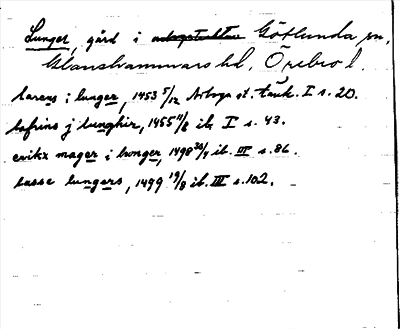 Lunger, gård i Götlunda sn,
Glanshammars hd, Örebro l.
larens i lunger, 1453 5/12 Arboga st. tänk. I s. 20.
lafrins j lunghir, 1455 11/8 ib. I s. 43.
erikx mager i lwnger, 1498 30/7 ib. III s. 86.
lasse lungers, 1499 19/8 ib. III s. 102.